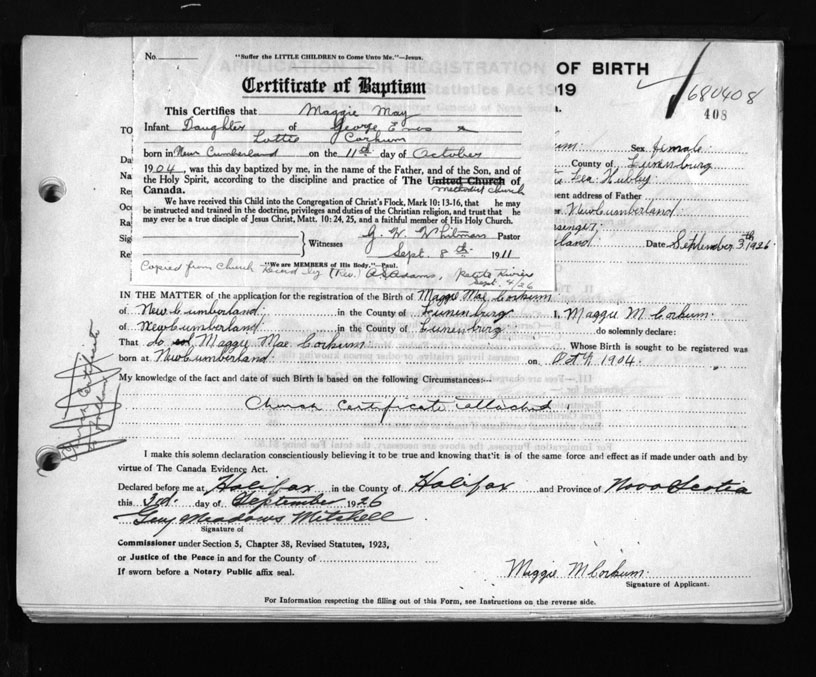 No. "Suffer the LITTLE CHILDREN to Come Unto Me."—Jesus.
Certificate of Baptism
This Certifies that Maggie May
Infant Daughter of George Enos &
Lottie Corkum
born in New Cumberland on the 11th day of October
1904, was this day baptized by me, in the name of the Father, and of the Son, and of
the Holy Spirit, according to the discipline and practice of The United Church of
Canada. Methodist Church
We have received this Child into the Congregation of Christ's Flock, Mark 10: 13-16, that he may
be instructed and trained in the doctrine, privileges and duties of the Christian religion, and trust that he
may ever be a true disciple of Jesus Christ, Matt. 10: 24, 25, and a faithful member of His Holy Church.
G. W. Whitman Pastor
Witnesses Sept. 8th 1911
"We are MEMBERS OF His Body."—Paul.
Copied from Church Record by (Rev.) Adams, Petite Riviere
Sept. 4/26
OF BIRTH
19
680408
408
TO
Da
Na
Re
Oc
Ra
Sig
Re
Sex female
County of Lunenburg
address of Father
New Cumberland
Date September 3rd 1926
IN THE MATTER of the application for the registration of the Birth of Maggie Mae Corkum
of New Cumberland in the County of Lunenburg I, Maggie M Corkum
of New Cumberland in the County of Lunenburg do solemnly declare:
That Maggie Mae Corkum Whose Birth is sought to be registered was
born at New Cumberland on Oct 1904.
My knowledge of the fact and date of such Birth is based on the following Circumstances:--
Church Certificate attached.
I make this solemn declaration conscientiously believing it to be true and knowing that it is of the same force and effect as if made under oath and by
virtue of The Canada Evidence Act.
Declared before me at Halifax in the County of Halifax and Province of Nova Scotia
this 3d. day of September 1926
Meadows Mitchell
Signature of
Commissioner under Section 5, Chapter 38, Revised Statutes, 1923,
or Justice of the Peace in and for the County of
If sworn before a Notary Public affix seal.
Maggie M Corkum
Signature of Applicant.
For Information respecting the filling out of this Form, see Instructions on the reverse side.